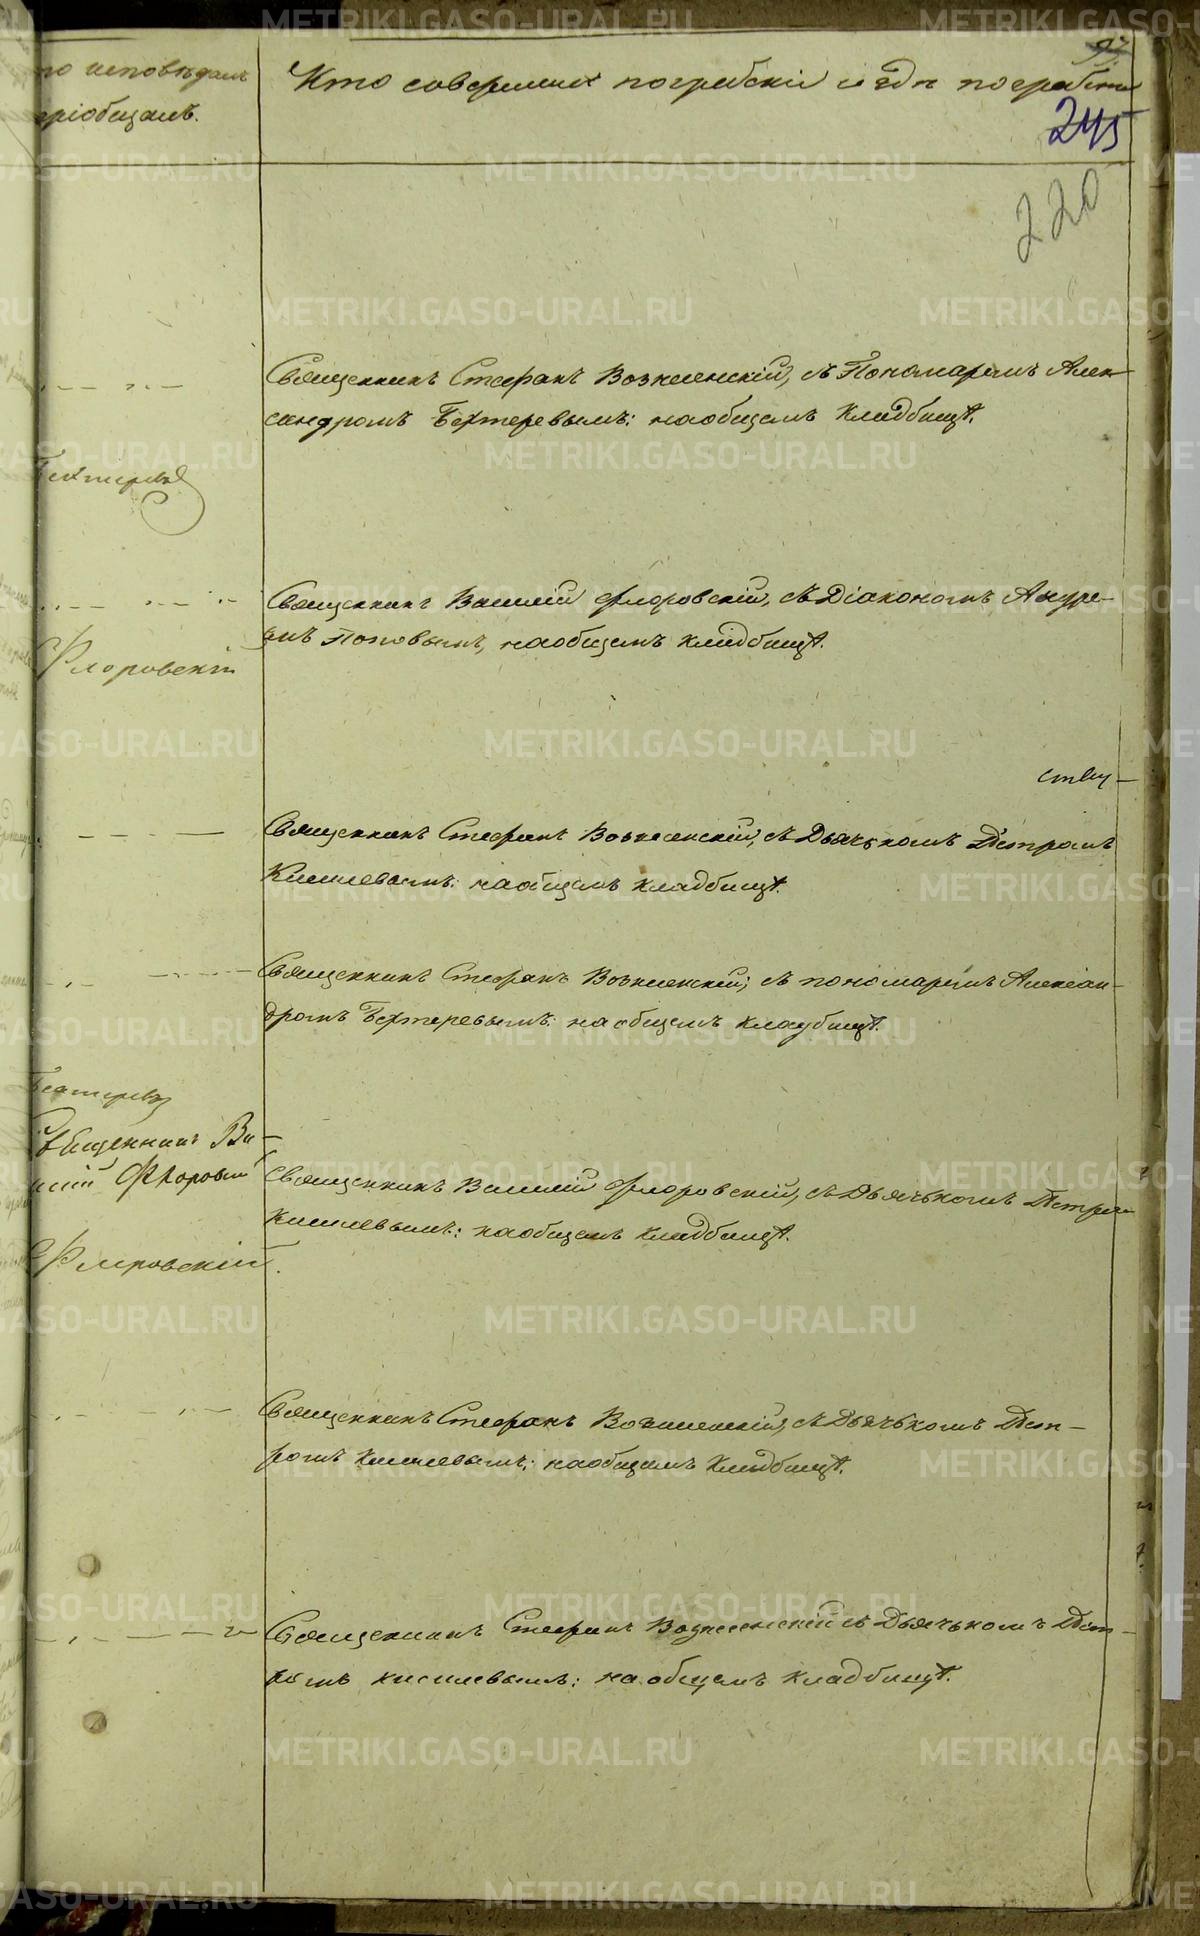 то исповѣдалъ
пріобщалъ.
Кто совершилъ погребеніе и гдѣ погребены
245
220
Священникъ Стефанъ Вознесенскій, съ Пономаремъ Алек-
сандромъ Бехтеревымъ: на общемъ кладбищѣ.
Бехтеревъ
Священникъ Василій Флоровскій, съ Діакономъ Андре-
емъ Поповымъ, на общемъ кладбищѣ.
Флоровскій
Священникъ Стефанъ Вознесенскій, съ Дьячькомъ Петромъ
Кисилевымъ: на общемъ кладбищѣ.
Священникъ Стефанъ Вознесенскій; съ пономаремъ Алексан-
дромъ Бехтеревымъ: на общемъ кладбищѣ.
Бехтеревъ
Священникъ Ва-
силій Флоровскій
Священникъ Василій Флоровскій, съ Дьячькомъ Петромъ
Кисилевымъ: на общемъ кладбищѣ.
Флоровскій.
Священникъ Стефанъ Вознесенскій, съ Дьячькомъ Пет-
ромъ Кисилевымъ: на общемъ кладбищѣ.
Священникъ Стефанъ Вознесенскій съ Дьячькомъ Пет-
ромъ Кисилевымъ: на общемъ кладбищѣ.
METRIKI.GASO-URAL.RU